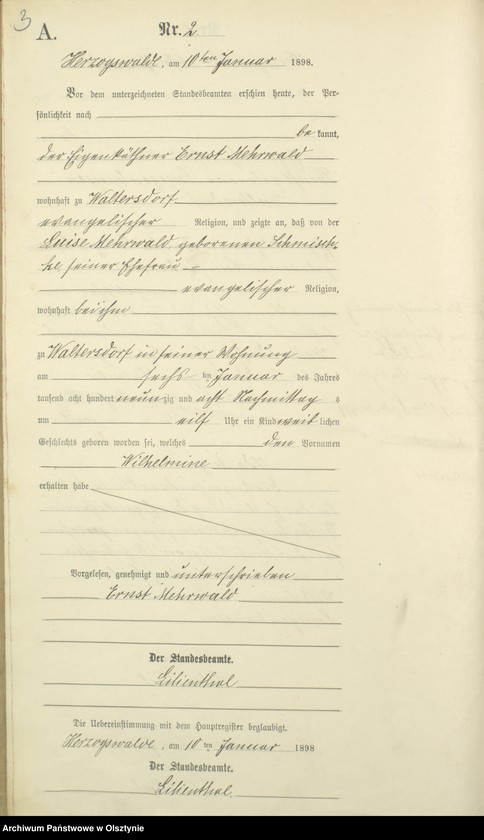 3
A.
Nr. 2
Herzogswalde, am 10ten Januar 1898.
Vor dem unterzeichneten Standesbeamten erschien heute, der Per-
sönlichkeit nach
be kannt,
der Eigenkäthner Ernst Mehrwald
wohnhaft zu Waltersdorf
evangelischer Religion, und zeigte an, daß von der
Luise Mehrwald, geborenen
seiner Ehefrau
evangelischer Religion,
wohnhaft bei ihm
zu Waltersdorf in seiner Wohnung
am sechs ten Januar des Jahres
tausend acht hundert neunzig und acht Nachmittag s
um eilf Uhr ein Kind weiblichen
Geschlechts geboren worden sei, welches den Vornamen
Wilhelmine
erhalten habe
Vorgelesen, genehmigt und unterschrieben
Ernst Mehrwald
Der Standesbeamte.
Lilienthal
Die Uebereinstimmung mit dem Hauptregister beglaubigt.
Herzogswalde, am 10 ten Januar 1898
Der Standesbeamte.
Lilienthal.
Archiwum Państwowe w Olsztynie